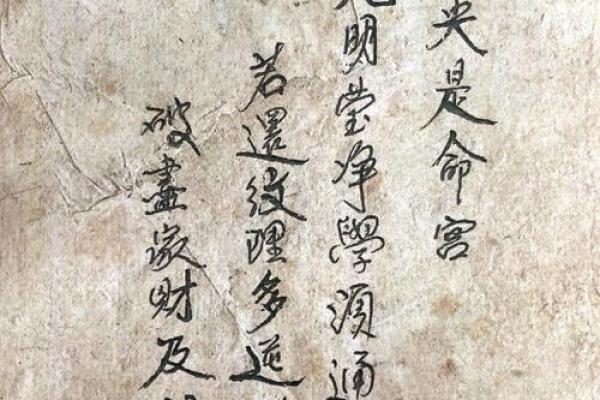 央是命宮
光明莹净學須通
若還紋理多迍
破盡家財及